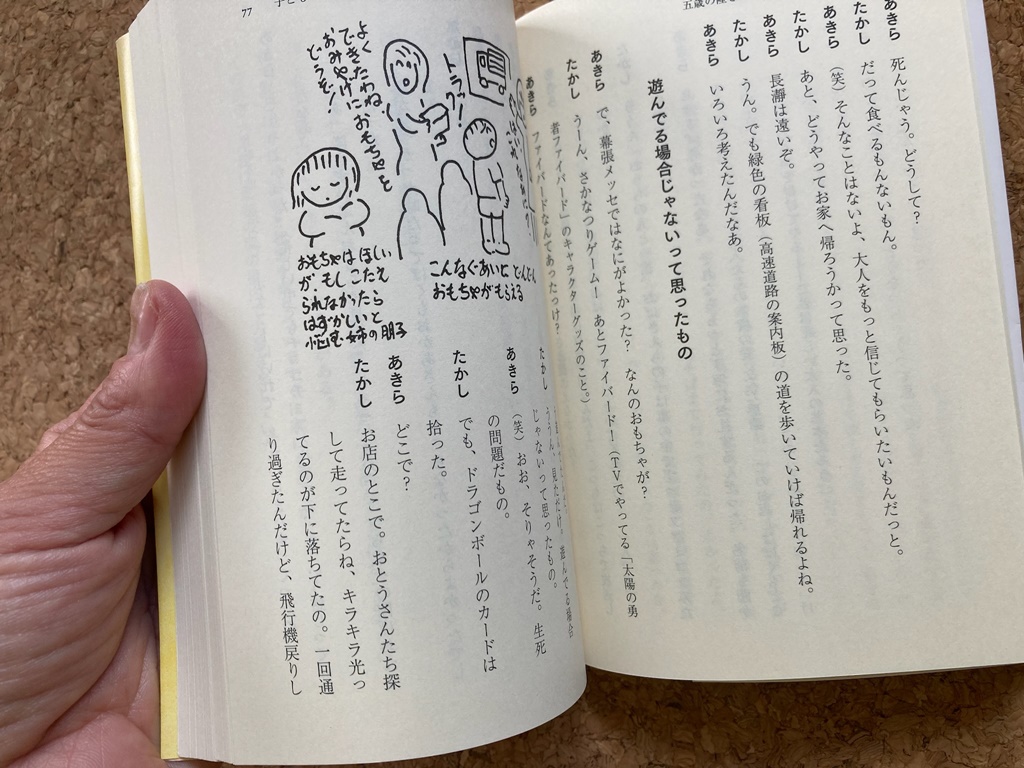 五歳の
あきら　死んじゃう。どうして？
たかし　だって食べるもんないもん。
あきら　（笑）そんなことはないよ、大人をもっと信じてもらいたいもんだっと。
たかし　あと、どうやってお家へ帰ろうかって思った。
あきら　長瀞は遠いぞ。
たかし　うん。でも緑色の看板（高速道路の案内板）の道を歩いていけば帰れるよね。
あきら　いろいろ考えたんだなあ。
遊んでる場合じゃないって思ったもの
あきら　で、幕張メッセではなにがよかった？　なんのおもちゃが？
たかし　うーん、さかなつりゲーム！　あとファイバード！（TVでやってる「太陽の勇
者ファイバード」のキャラクターグッズのこと。）
あきら　ファイバードなんてあったっけ？
たかし　ううん、見ただけ。遊んでる場合
じゃないって思ったもの。
あきら　（笑）おお、そりゃそうだ。生死
の問題だもの。
たかし　でも、ドラゴンボールのカードは
拾った。
あきら　どこで？
たかし　お店のとこで。おとうさんたち探
して走ってたらね、キラキラ光っ
てるのが下に落ちてたの。一回通
り過ぎたんだけど、飛行機戻りし
トラック！
よく
できたわね
おみやげに おもちゃを
どうぞ！
こんなぐあいに どんどん
おもちゃがもらえる
おもちゃは ほしい
が、もし こたえ
られなかったら
はずかしいと
悩む 姉の朋子
77